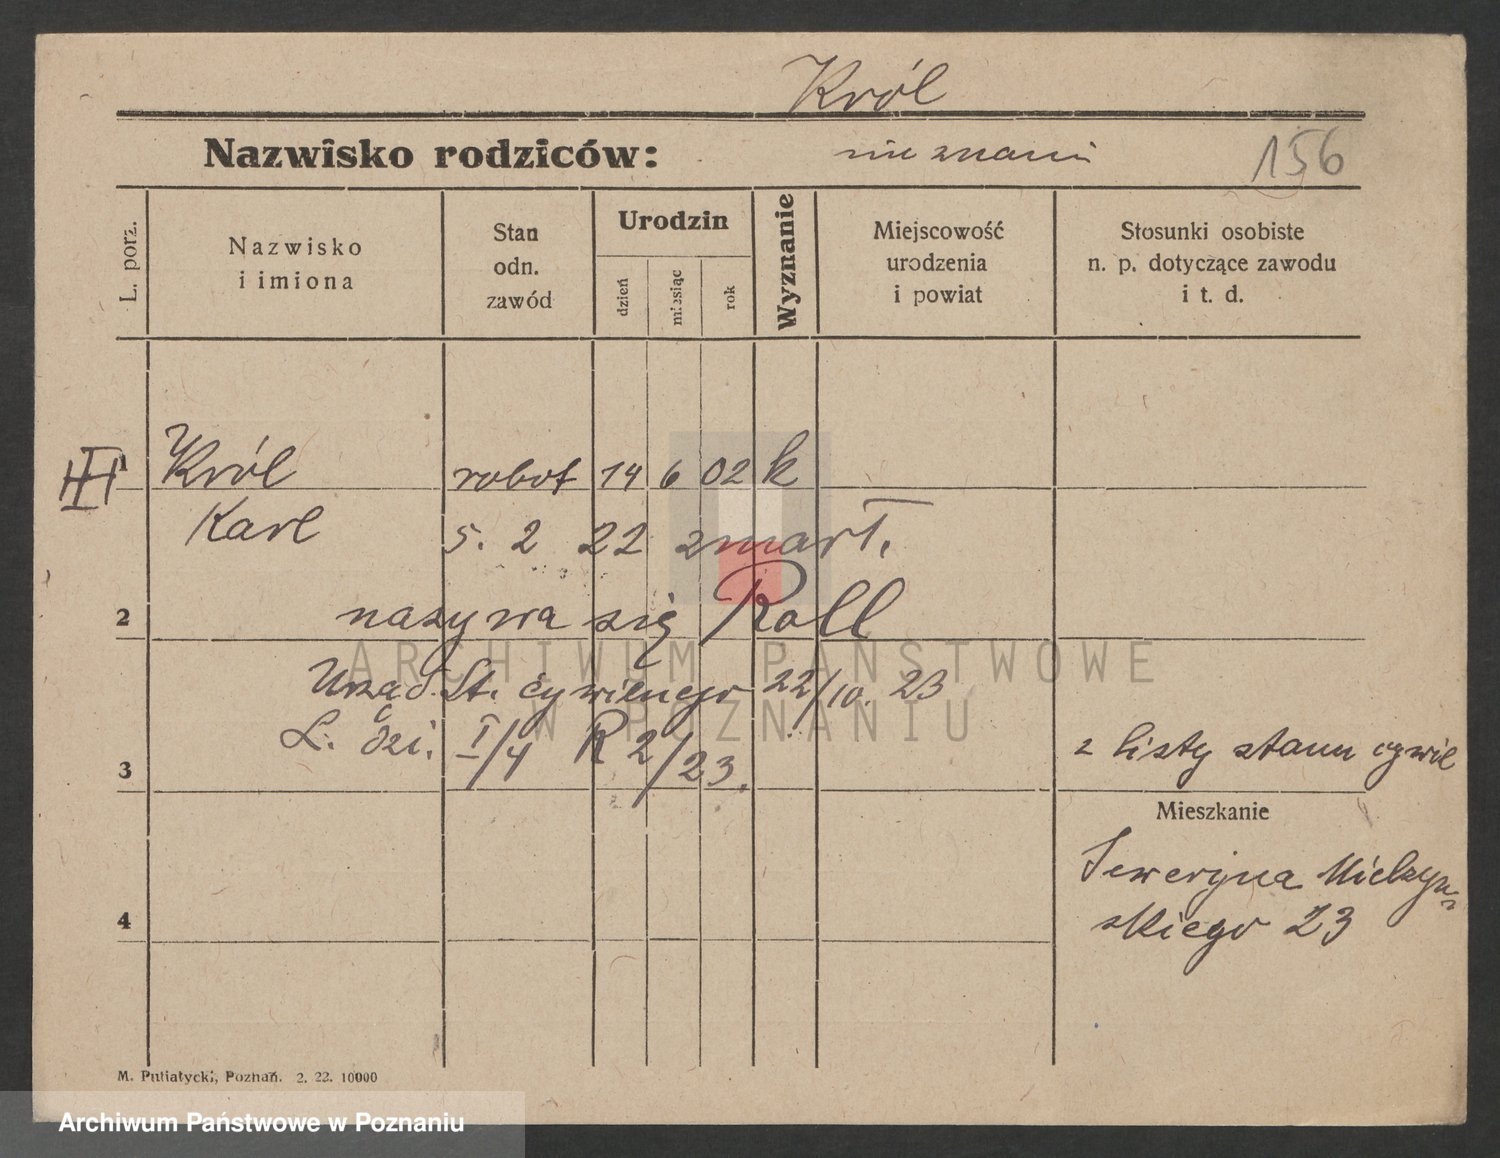 Król
Nazwisko rodziców: nieznani
156
L. porz.
Nazwisko
i imiona
Stan
odn.
zawód
Urodzin
dzień
miesiąc
rok
Wyznanie
Miejscowość
urodzenia
i powiat
Stosunki osobiste
n. p. dotyczące zawodu
i t. d.
III
1
Król robot 14 6 02 k
Karl 5. 2 22 zmart.
2 nazywa się Roll
Urząd St. cywilnego 22/10. 23
L. dzi. I/4 R 2/23.
3
z listy stanu cywil
Mieszkanie
Seweryna Mielżyń-
skiego 23
4
M. Putiatycki, Poznań. 2. 22. 10000
ARCHIWUM PAŃSTWOWE
W POZNANIU
Archiwum Państwowe w Poznaniu